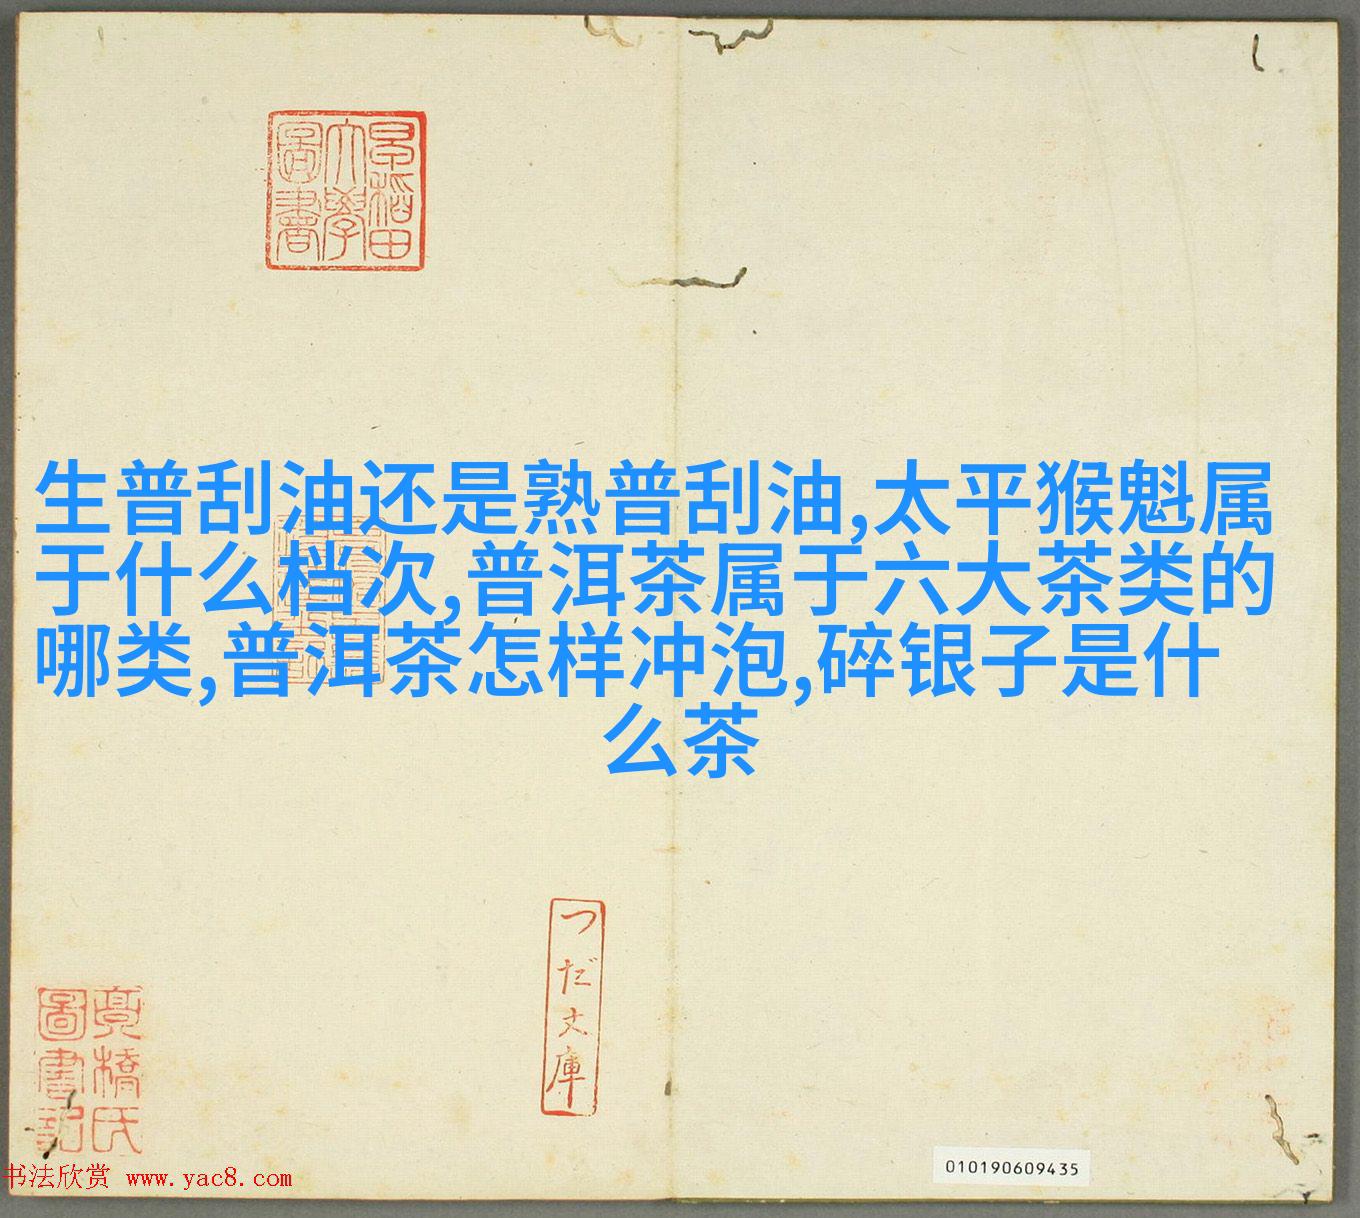 早稻田
大學
圖書
生普刮油还是熟普刮油,太平猴魁属
于什么档次,普洱茶属于六大茶类的
哪类,普洱茶怎样冲泡,碎银子是什
么茶
つだ文庫
橋氏
圖書記
010190609435
书法欣赏 www.yac8.com